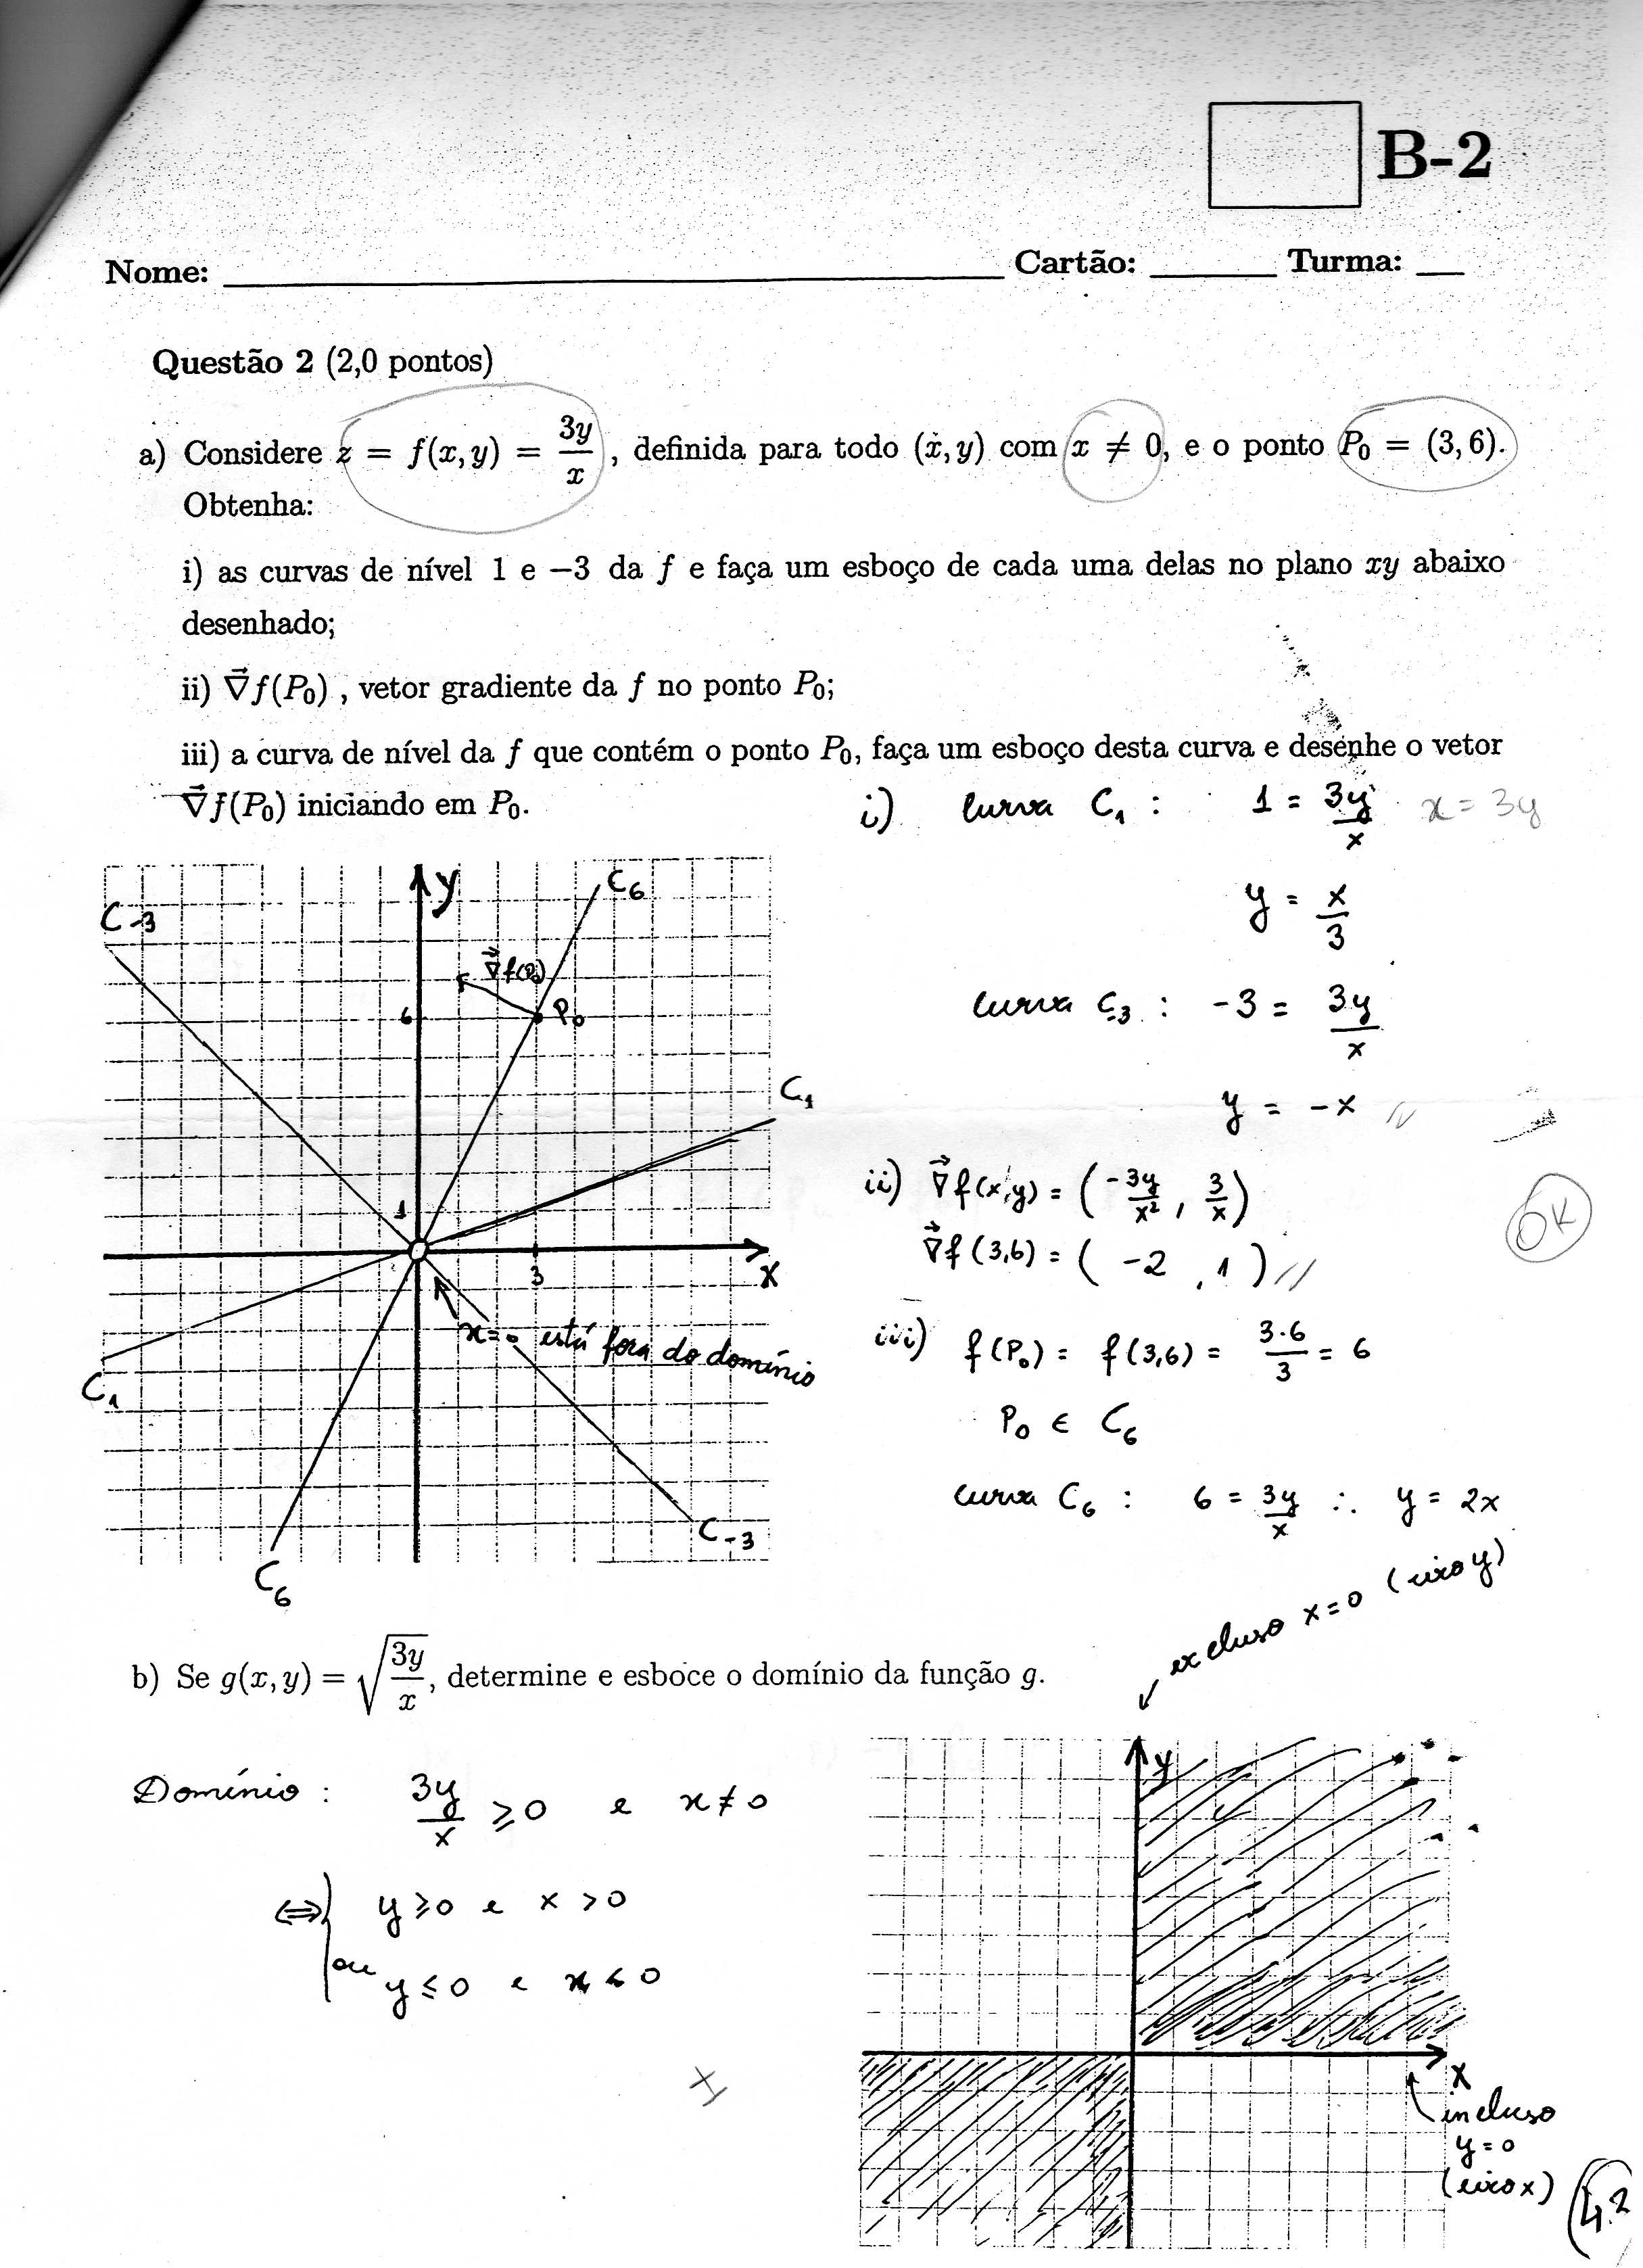 B-2
Nome: ____ Cartão: ____ Turma: ____
Questão 2 (2,0 pontos)
a) Considere z = f(x, y) = 3y/x , definida para todo (x, y) com x ≠ 0, e o ponto P₀ = (3, 6).
Obtenha:
i) as curvas de nível 1 e −3 da f e faça um esboço de cada uma delas no plano xy abaixo
desenhado;
ii) ∇⃗f(P₀) , vetor gradiente da f no ponto P₀;
iii) a curva de nível da f que contém o ponto P₀, faça um esboço desta curva e desenhe o vetor
∇⃗f(P₀) iniciando em P₀.
i) curva C₁ : 1 = 3y/x x = 3y
y = x/3
curva C₋₃ : -3 = 3y/x
y = -x
ii) ∇⃗f(x,y) = (-3y/x², 3/x)
∇⃗f(3,6) = (-2, 1) //
OK
iii) f(P₀) = f(3,6) = 3·6/3 = 6
P₀ ∈ C₆
curva C₆ : 6 = 3y/x ∴ y = 2x
C₋₃
y
C₆
∇⃗f(P₀)
6
P₀
C₁
1
3
x
x=0 está fora do domínio
C₁
C₋₃
C₆
excluso x=0 (eixo y)
b) Se g(x, y) = √(3y/x), determine e esboce o domínio da função g.
Domínio : 3y/x ≥ 0 e x ≠ 0
⇔ y ≥ 0 e x > 0
ou y ≤ 0 e x < 0
y
x
incluso
y=0
(eixo x)
4.2